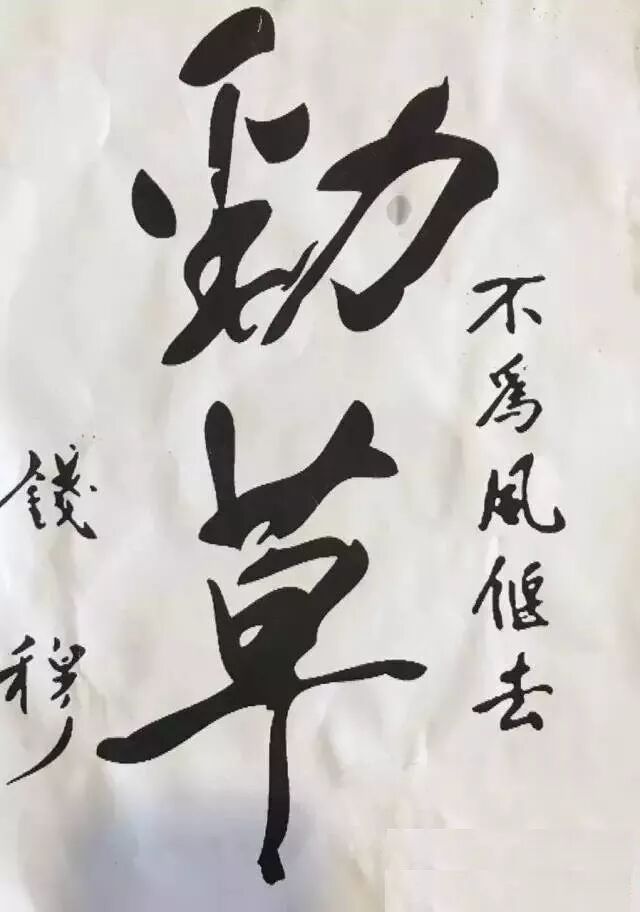 不為風偃去
勁草
錢穆